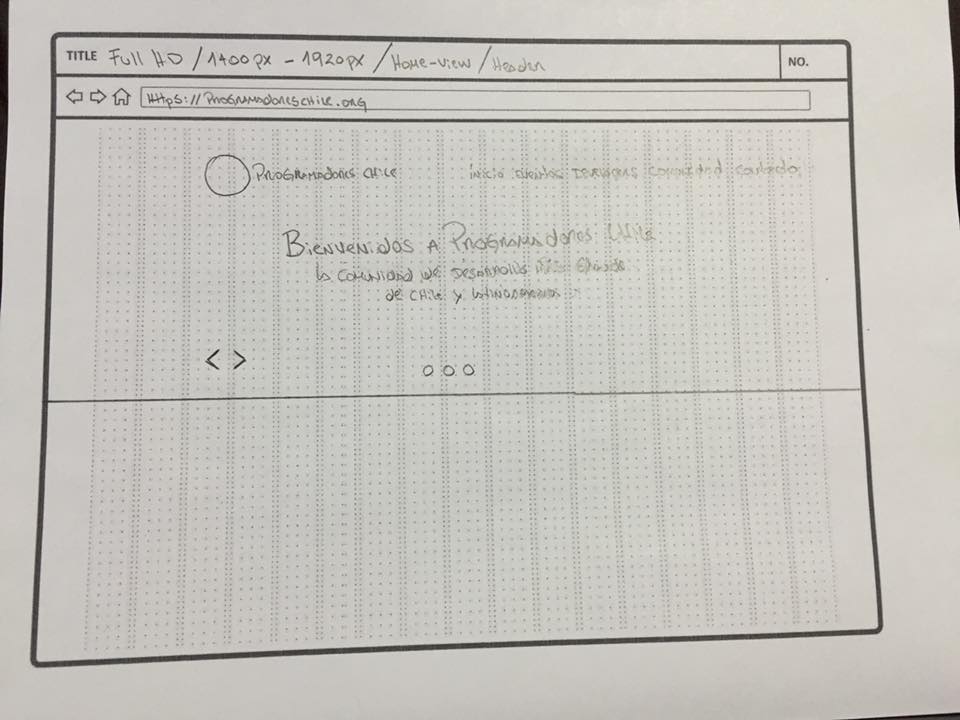 TITLE Full HD / 1400px - 1920px / Home-view / Header
NO.
https://programadoreschile.org
Programadores Chile
inicio eventos comunidad contacto
Bienvenidos a Programadores Chile
la comunidad de desarrollo más grande
de Chile y latinoamerica